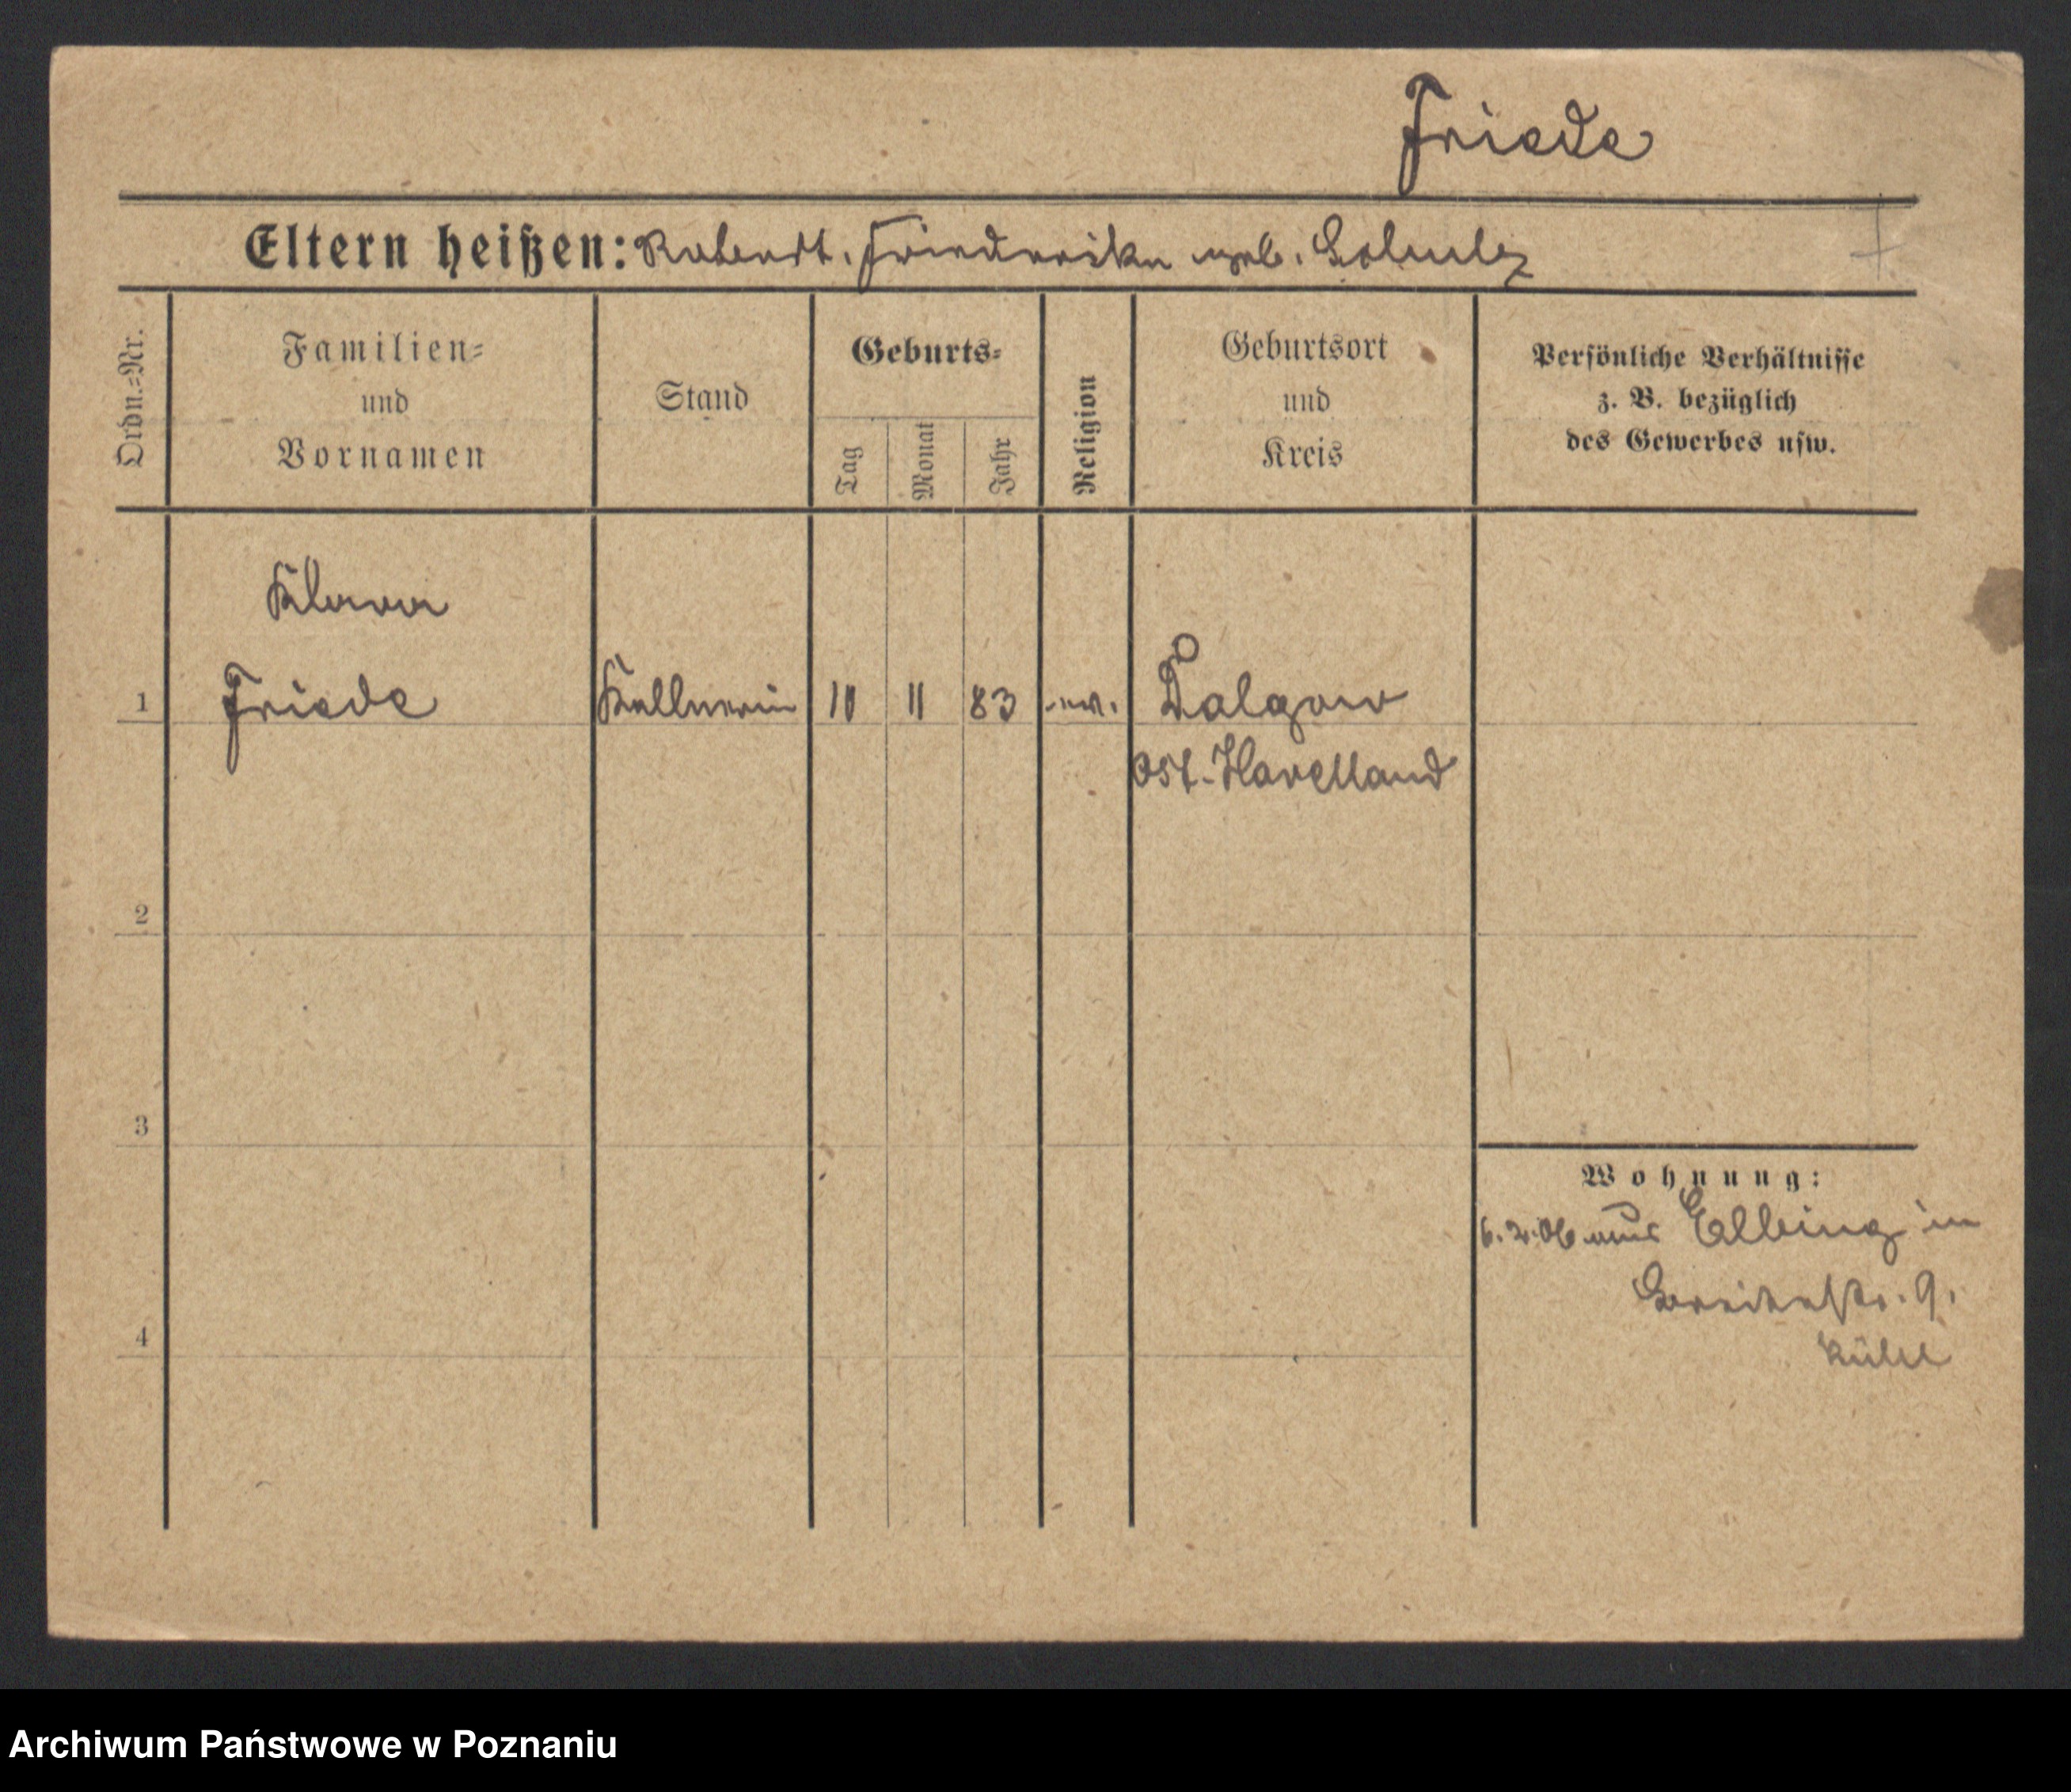 Friede
Eltern heißen: Robert, Friederike geb. Schulz
Ordn.-Nr.
Familien-
und
Vornamen
Stand
Geburts-
Tag
Monat
Jahr
Religion
Geburtsort
und
Kreis
Persönliche Verhältnisse
z. B. bezüglich
des Gewerbes usw.
Klara
1 Friede Kellnerin 10 11 83 ev. Dalgow
Ost-Havelland
2
3
4
Wohnung:
6.2.06 aus Elbing in
Breitestr. 9.
Archiwum Państwowe w Poznaniu